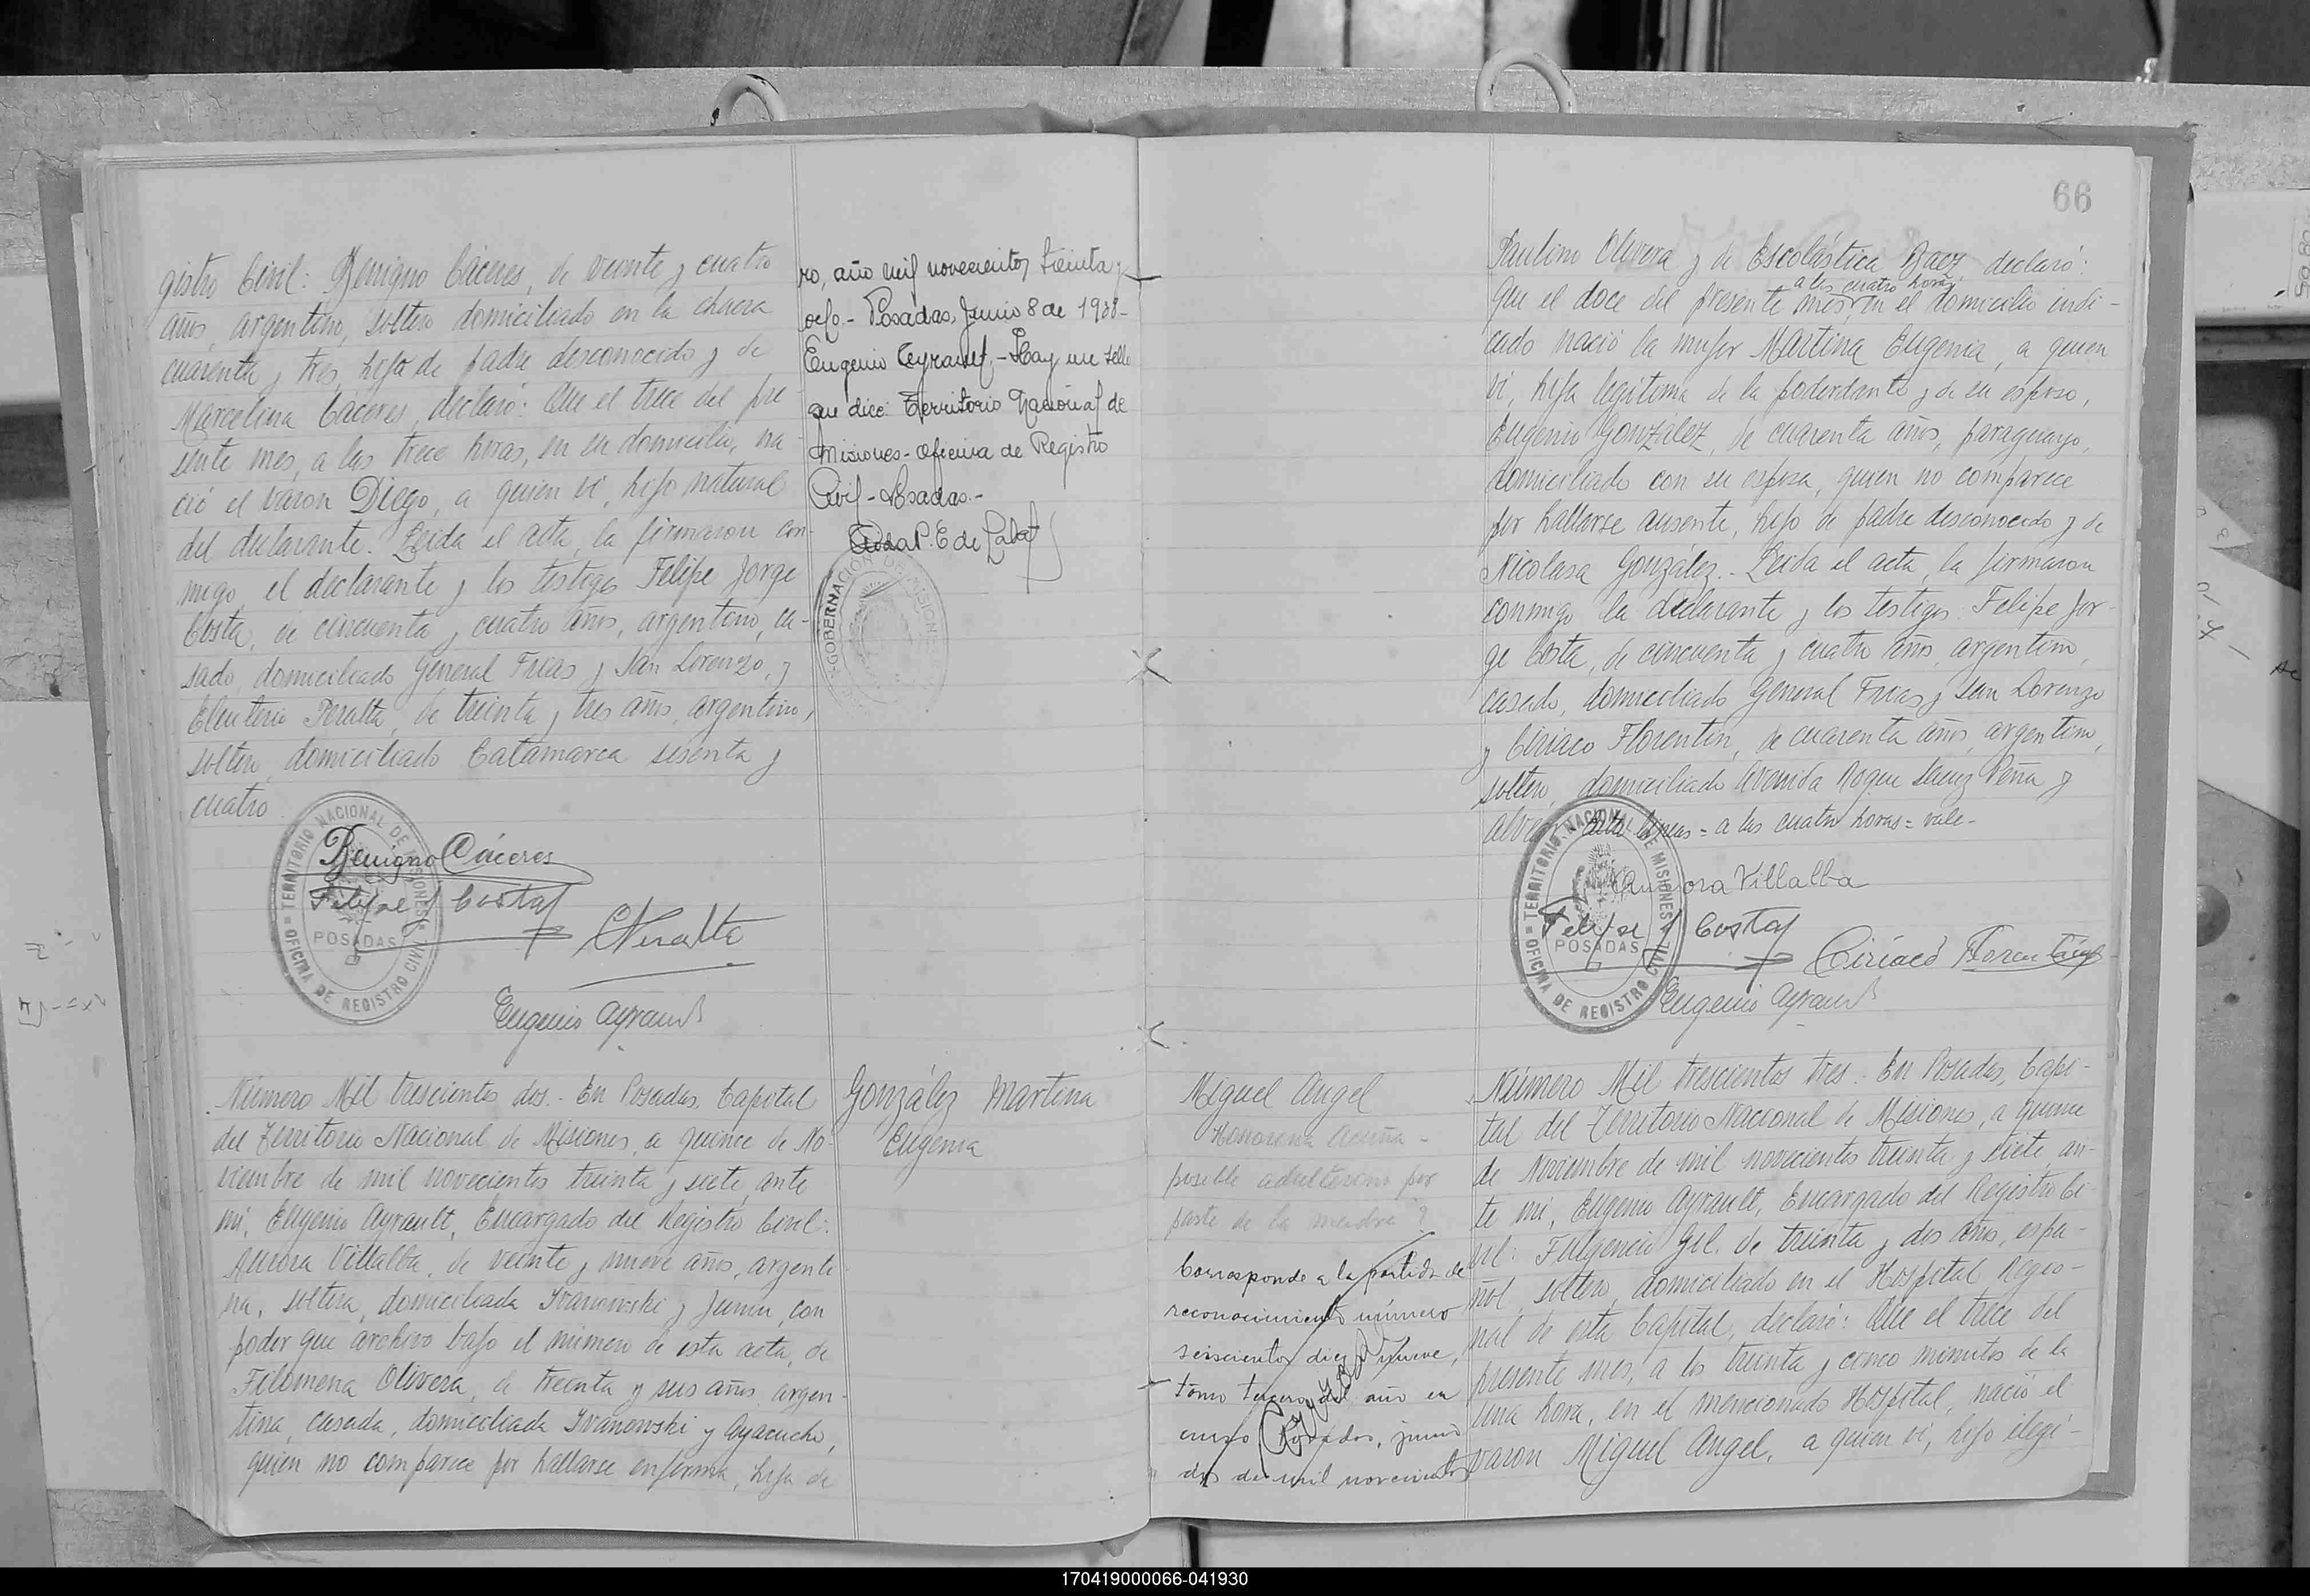 gistro Civil: Benigno Cáceres, de veinte y cuatro
años, argentino, soltero domiciliado en la chacra
cuarenta y tres, hijo de padre desconocido y de
Marcelina Cáceres, declaró: Que el trece del pre-
sente mes, a las trece horas, en su domicilio, na-
ció el varon Diego, a quien ví, hijo natural
del declarante. Leida el acta, la firmaron con-
migo, el declarante y los testigos Felipe Jorge
Costa, de cincuenta y cuatro años, argentino, ca-
sado, domiciliado General Frias y San Lorenzo, y
Eleuterio Peralta, de treinta y tres años, argentino,
soltero, domiciliado Catamarca sesenta y
cuatro
Benigno Cáceres
Felipe J Costa
EPeralta
Eugenio Ayrault
TERRITORIO NACIONAL DE MISIONES
POSADAS
OFICINA DE REGISTRO CIVIL
Número Mil trescientos dos.- En Posadas, Capital
del Territorio Nacional de Misiones, a quince de No-
viembre de mil novecientos treinta y siete, ante
mí, Eugenio Ayrault, Encargado del Registro Civil:
Aurora Villalba, de veinte y nueve años, argenti-
na, soltera, domiciliada Ivanowski y Junin, con
poder que archivo bajo el número de esta acta, de
Filomena Olivera, de treinta y seis años, argen-
tina, casada, domiciliada Ivanowski y Ayacucho,
quien no comparece por hallarse enferma, hija de
ro, año mil novecientos treinta y
ocho.- Posadas, Junio 8 de 1938-
Eugenio Ayrault.- Hay un sello
que dice: Territorio Nacional de
Misiones- Oficina de Registro
Civil- Posadas.-
P. E de
GOBERNACIÓN DE MISIONES
González Martina
Eugenia
66
Paulino Olivera y de Escolástica Baez, declaró:
a las cuatro horas
Que el doce del presente mes, en el domicilio indi-
cado nació la mujer Martina Eugenia, a quien
ví, hija legítima de la poderdante y de su esposo,
Eugenio González, de cuarenta años, paraguayo,
domiciliado con su esposa, quien no comparece
por hallarse ausente, hijo de padre desconocido y de
Nicolasa González.- Leida el acta, la firmaron
conmigo la declarante y los testigos Felipe Jor-
ge Costa, de cincuenta y cuatro años, argentino,
casado, domiciliado General Frias y San Lorenzo
y Ciriaco Florentin, de cuarenta años, argentino,
soltero, domiciliado Avenida Roque Saenz Peña y
Alvear lineas = a las cuatro horas = vale-
Aurora Villalba
Felipe J Costa
Ciriaco Florentin
Eugenio Ayrault
TERRITORIO NACIONAL DE MISIONES
POSADAS
OFICINA DE REGISTRO CIVIL
Miguel Angel
Acuña -
posible adulterino por
parte de la madre ?
Corresponde a la partida de
reconocimiento número
seiscientos diez y nueve,
tomo tercero del año en
curso Posadas, junio
dos de mil novecientos
Número Mil trescientos tres.- En Posadas, Capi-
tal del Territorio Nacional de Misiones, a quince
de Noviembre de mil novecientos treinta y siete an-
te mí, Eugenio Ayrault, Encargado del Registro Ci-
vil: Fulgencio Gil, de treinta y dos años, espa-
ñol, soltero, domiciliado en el Hospital Regio-
nal de esta Capital, declaró: Que el trece del
presente mes, a los treinta y cinco minutos de la
una hora, en el mencionado Hospital, nació el
varon Miguel Angel, a quien ví, hijo ilegí-
170419000066-041930